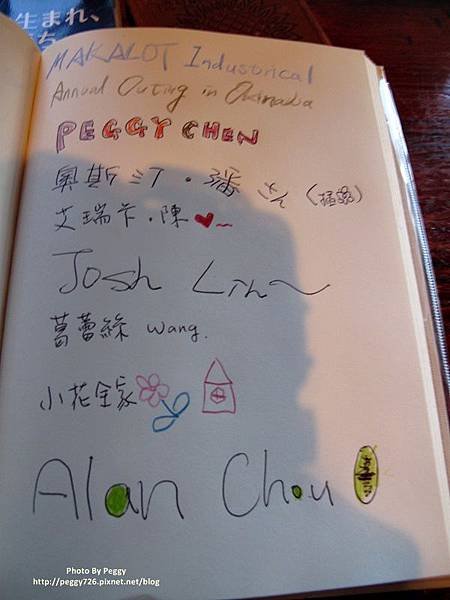 生まれ、
MAKALOT Industrical
Annual Outing in Okinawa
PEGGY CHEN
奧斯汀・潘 さん
艾瑞卡・陳♥~
Josh Lin~
葛蕾絲 Wang.
小花全家
Alan Chou
Photo By Peggy
http://peggy726.pixnet.net/blog